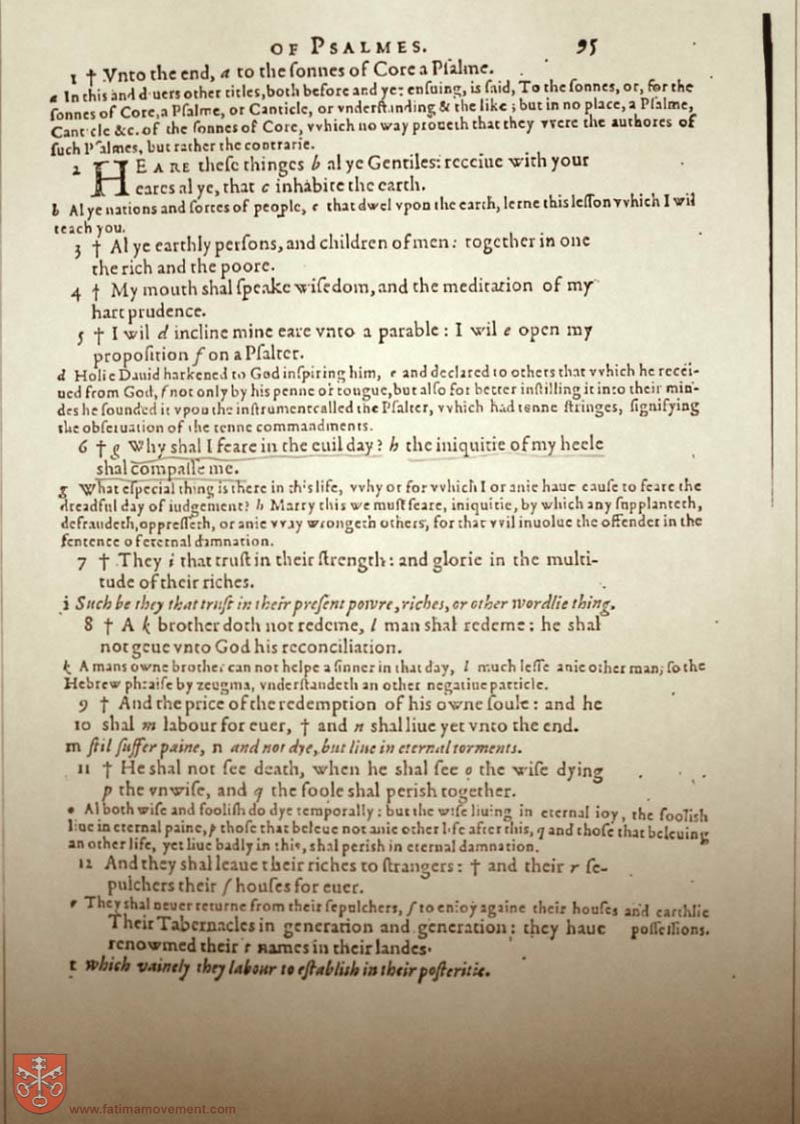 OF PSALMES. 95
1 † Vnto the end, a to the sonnes of Core a Psalme.
a In this and diuers other titles, both before and yet ensuing, is said, To the sonnes, or, for the
sonnes of Core, a Psalme, or Canticle, or vnderstanding & the like; but in no place, a Psalme,
Canticle &c. of the sonnes of Core, vvhich no way proueth that they vvere the authores of
such Psalmes, but rather the contrarie.
2 HEARE these thinges b al ye Gentiles: receiue with your
eares al ye, that c inhabite the earth.
b Al ye nations and sortes of people, c that dwel vpon the earth, lerne this lesson vvhich I wil
teach you.
3 † Al ye earthly persons, and children of men: together in one
the rich and the poore.
4 † My mouth shal speake wisedom, and the meditation of my
hart prudence.
5 † I wil d incline mine eare vnto a parable: I wil e open my
proposition f on a Psalter.
d Holie Dauid harkened to God inspiring him, e and declared to others that vvhich he recei-
ued from God, f not only by his penne or tongue, but also for better instilling it into their min-
des he sounded it vpon the instrument called the Psalter, vvhich had tenne stringes, signifying
the obseruation of the tenne commandments.
6 † g Why shal I feare in the euil day? h the iniquitie of my heele
shal compasse me.
g What especial thing is there in this life, vvhy or for vvhich I or anie haue cause to feare the
dreadful day of iudgement? h Marry this we must feare, iniquitie, by which any supplanteth,
defraudeth, oppresseth, or anie vvay wrongeth others, for that vvil inuolue the offender in the
sentence of eternal damnation.
7 † They i that trust in their strength: and glorie in the multi-
tude of their riches.
i Such be they that trust in their present powre, riches, or other wordlie thing.
8 † A k brother doth not redeme, l man shal redeme: he shal
not geue vnto God his reconciliation.
k A mans owne brother can not helpe a sinner in that day, l much lesse anie other man; so the
Hebrew phraise by zeugma, vnderstandeth an other negatiue particle.
9 † And the price of the redemption of his owne soule: and he
10 shal m labour for euer, † and n shal liue yet vnto the end.
m stil suffer paine, n and not dye, but liue in eternal torments.
11 † He shal not see death, when he shal see o the wise dying
p the vnwise, and q the foole shal perish together.
o Al both wise and foolish do dye temporally; but the wise liuing in eternal ioy, the foolish
liue in eternal paine, p those that beleue not anie other life after this, q and those that beleuing
an other life, yet liue badly in this, shal perish in eternal damnation.
12 And they shal leaue their riches to strangers: † and their r se-
pulchers their s houses for euer.
r They shal neuer returne from their sepulchers, s to enioy againe their houses and earthlie
possessions.
Their Tabernacles in generation and generation: they haue
renowmed their t names in their landes.
t which vainely they labour to establish in their posteritie.
www.fatimamovement.com